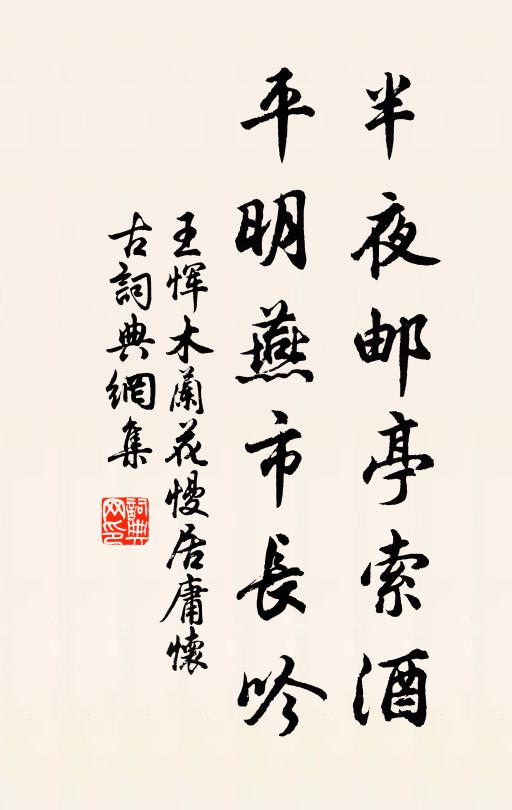 半夜邮亭索酒
平明燕市長吟
王恽木蘭花慢居庸懷
古詞典網集
詞典网印